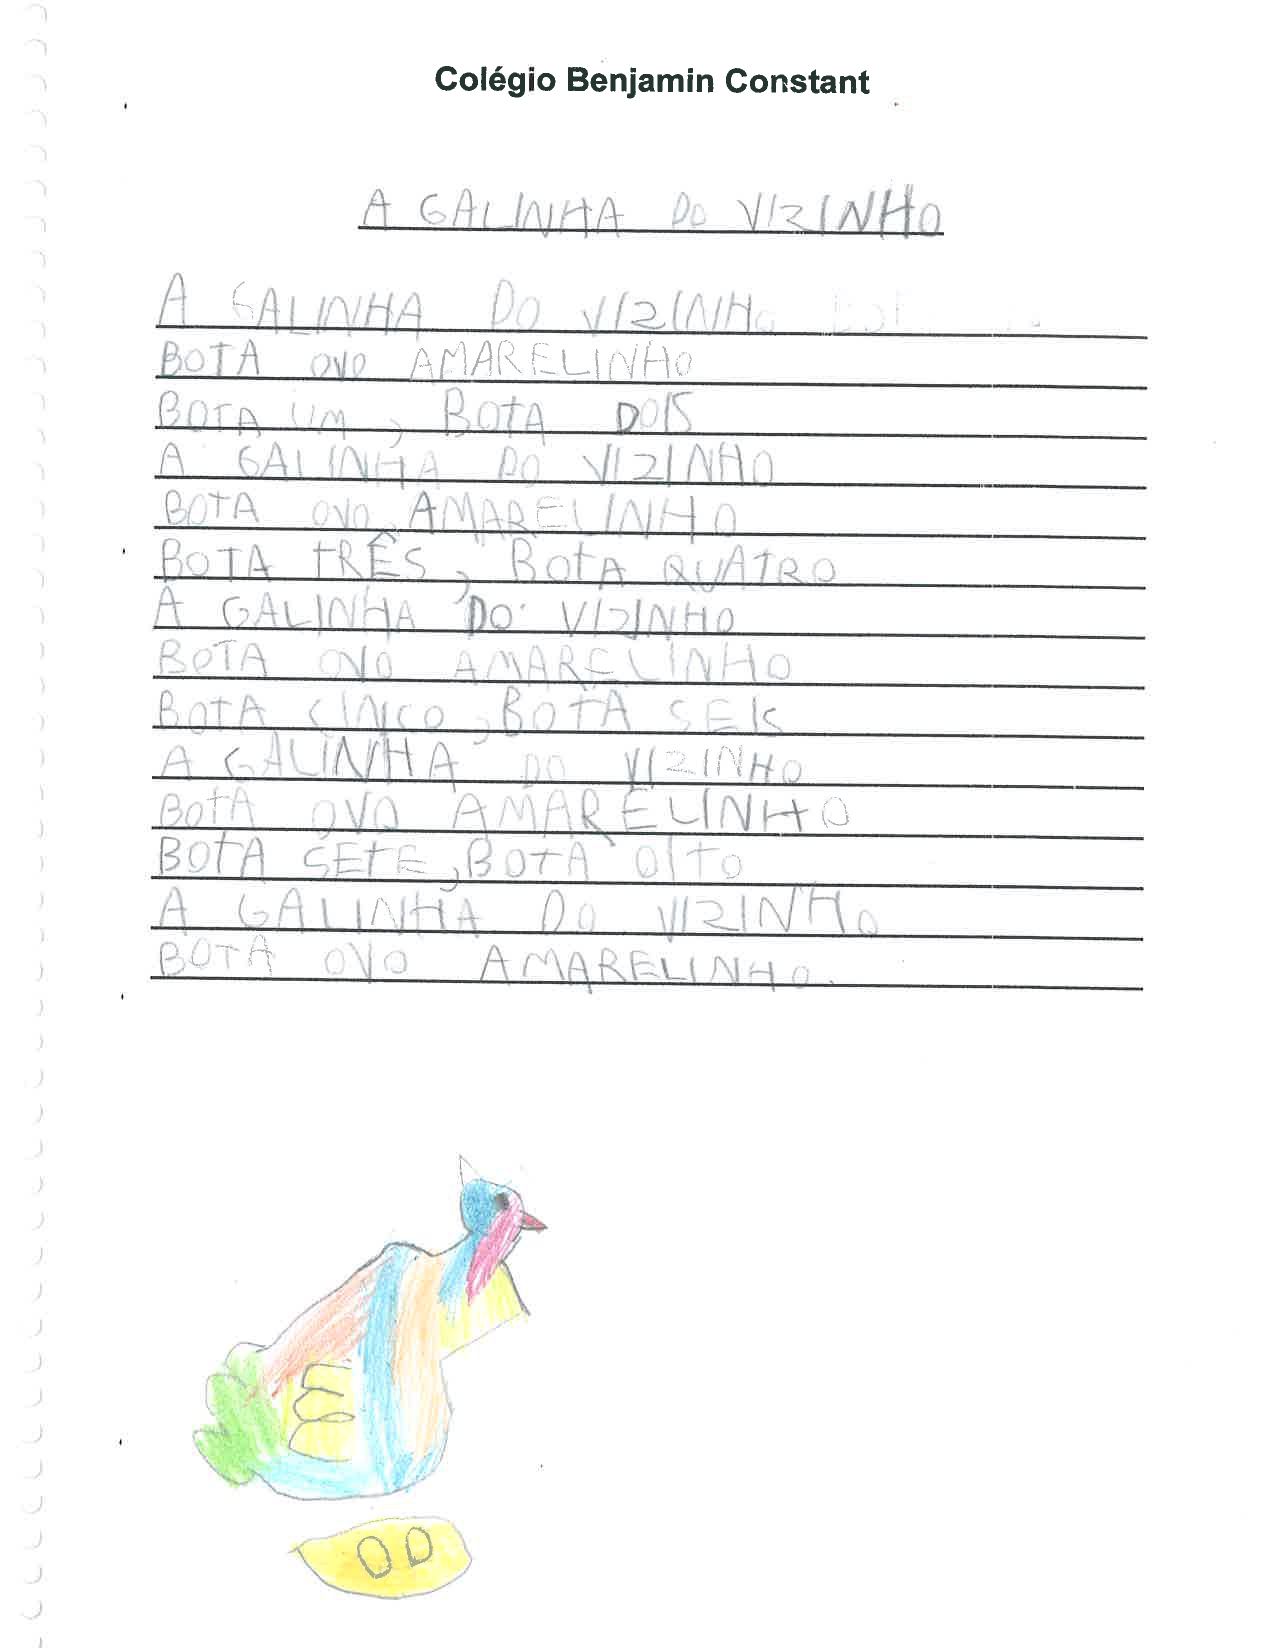 Colégio Benjamin Constant
A GALINHA DO VIZINHO
A GALINHA DO VIZINHO
BOTA OVO AMARELINHO
BOTA UM, BOTA DOIS
A GALINHA DO VIZINHO
BOTA OVO AMARELINHO
BOTA TRÊS, BOTA QUATRO
A GALINHA DO VIZINHO
BOTA OVO AMARELINHO
BOTA CINCO, BOTA SEIS
A GALINHA DO VIZINHO
BOTA OVO AMARELINHO
BOTA SETE, BOTA OITO
A GALINHA DO VIZINHO
BOTA OVO AMARELINHO.